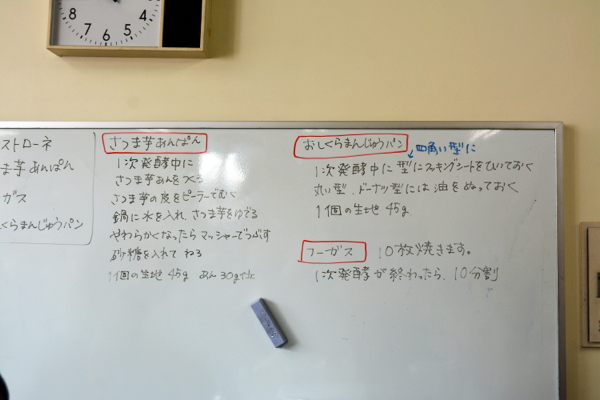 8 7 6 5 4
ストローネ
ま芋あんぱん
ガス
くらまんじゅうパン
さつま芋あんぱん
1次発酵中に
さつま芋あんをつくる
さつま芋の皮をピーラーでむく
鍋に水を入れ、さつま芋をゆでる
やわらかくなったらマッシャーでつぶす
砂糖を入れて ねる
1個の生地 45g あん 30g
おしくらまんじゅうパン
四角い型に
1次発酵中に型にスキングシートをひいておく
丸い型、ドーナツ型には油をぬっておく
1個の生地 45g
フーガス 10枚焼きます。
1次発酵が終わったら、10分割